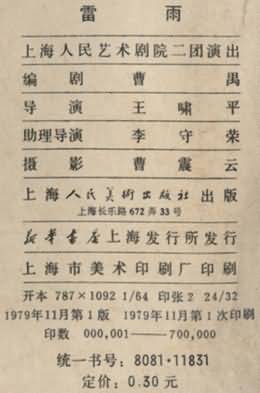 雷雨
上海人民艺术剧院二团演出
编剧 曹禺
导演 王啸平
助理导演 李守荣
摄影 曹震云
上海人民美術出版社出版
上海长乐路672弄33号
新华書店上海发行所发行
上海市美术印刷厂印刷
开本 787×1092 1/64 印张2 24/32
1979年11月第1版 1979年11月第1次印刷
印数 000,001——700,000
统一书号：8081·11831
定价：0.30元